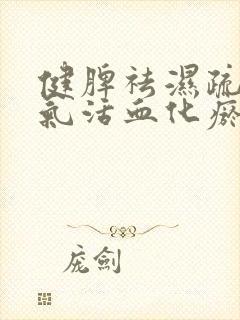 健脾祛濕疏
氣活血化瘀
庞劍